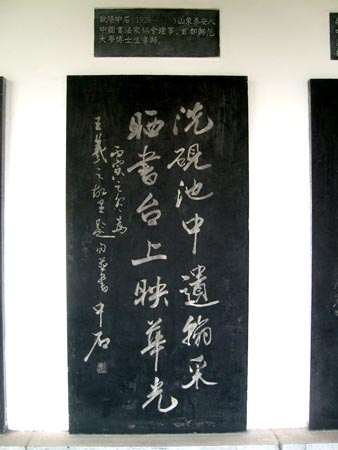 歐陽中石(1928— )山東泰安人
中國書法家協會理事、首都師範
大學博士生導師。
洗硯池中遺翰采
晒書台上映華光
丙寅之歲爲
王羲之故里題句並書 中石